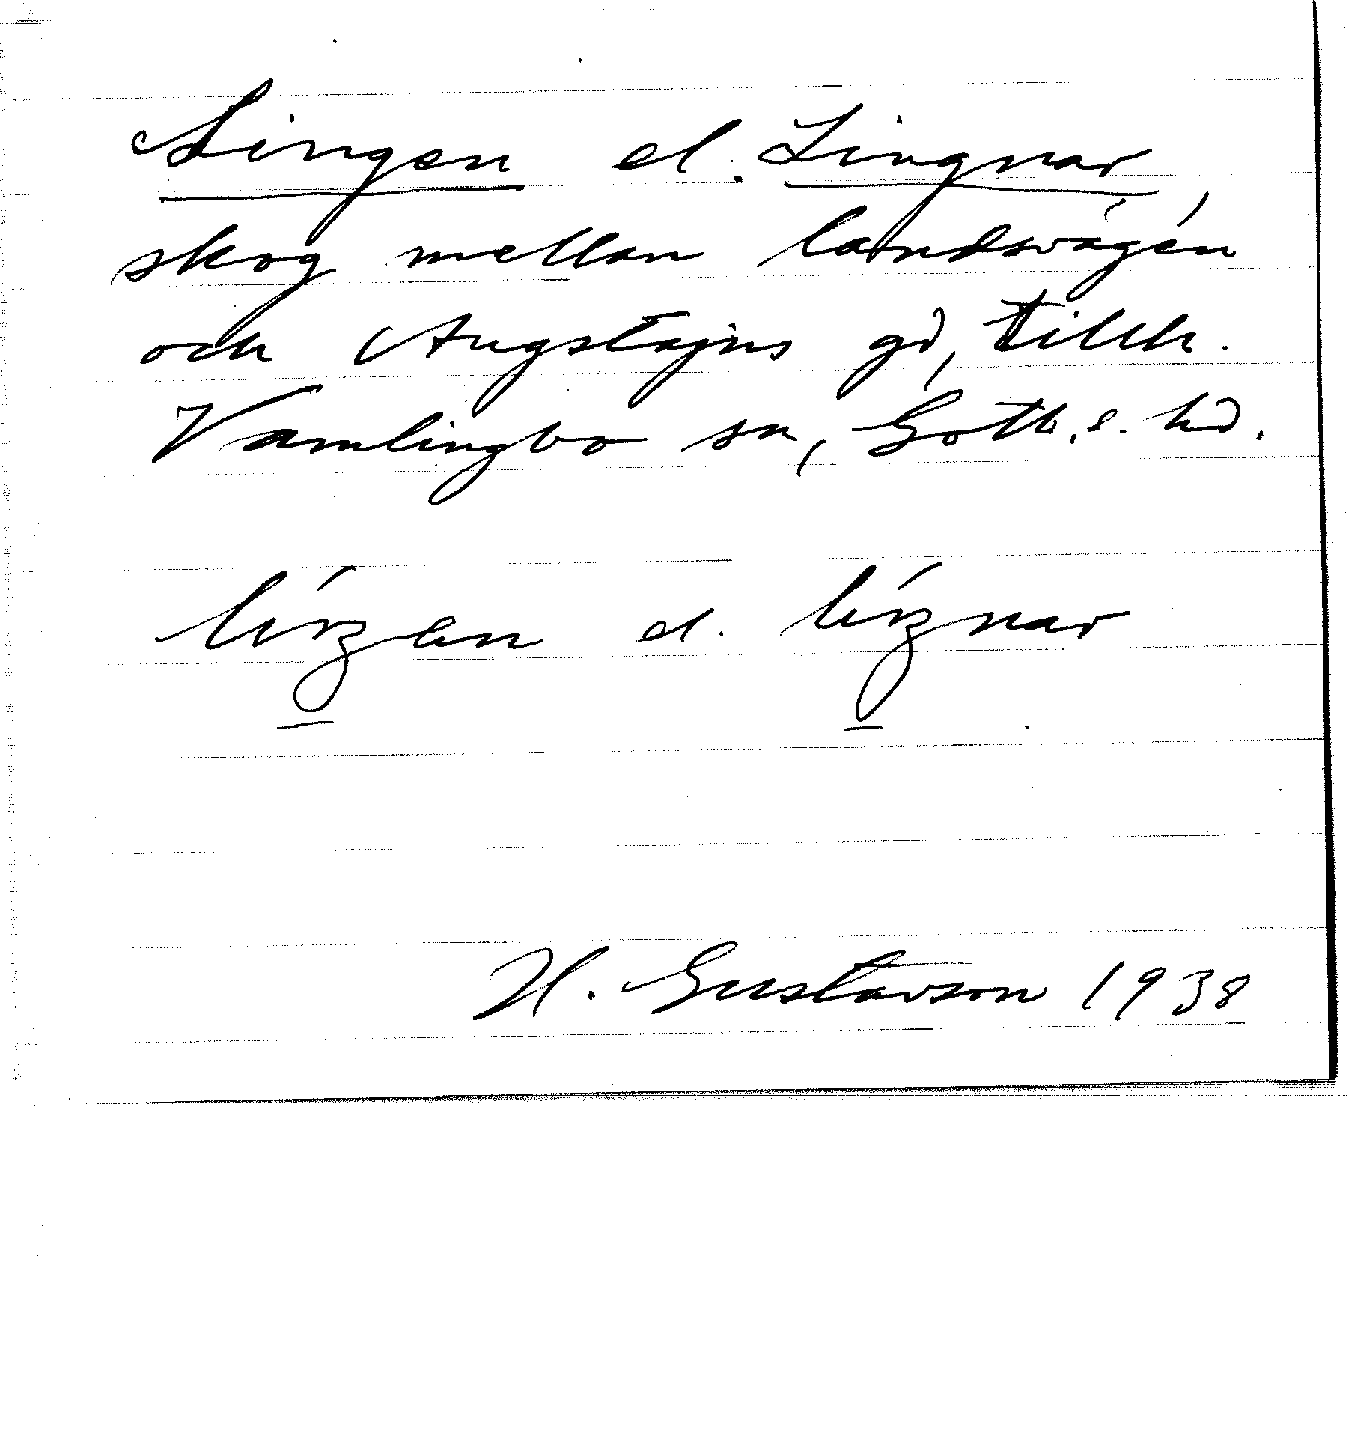 Lingen el. Lingnar,
skog mellan landsvägen
och Augstajns gd, tillh.
Vamlingbo sn, Gotl. s. hd.
el.
H. Gustavson 1938